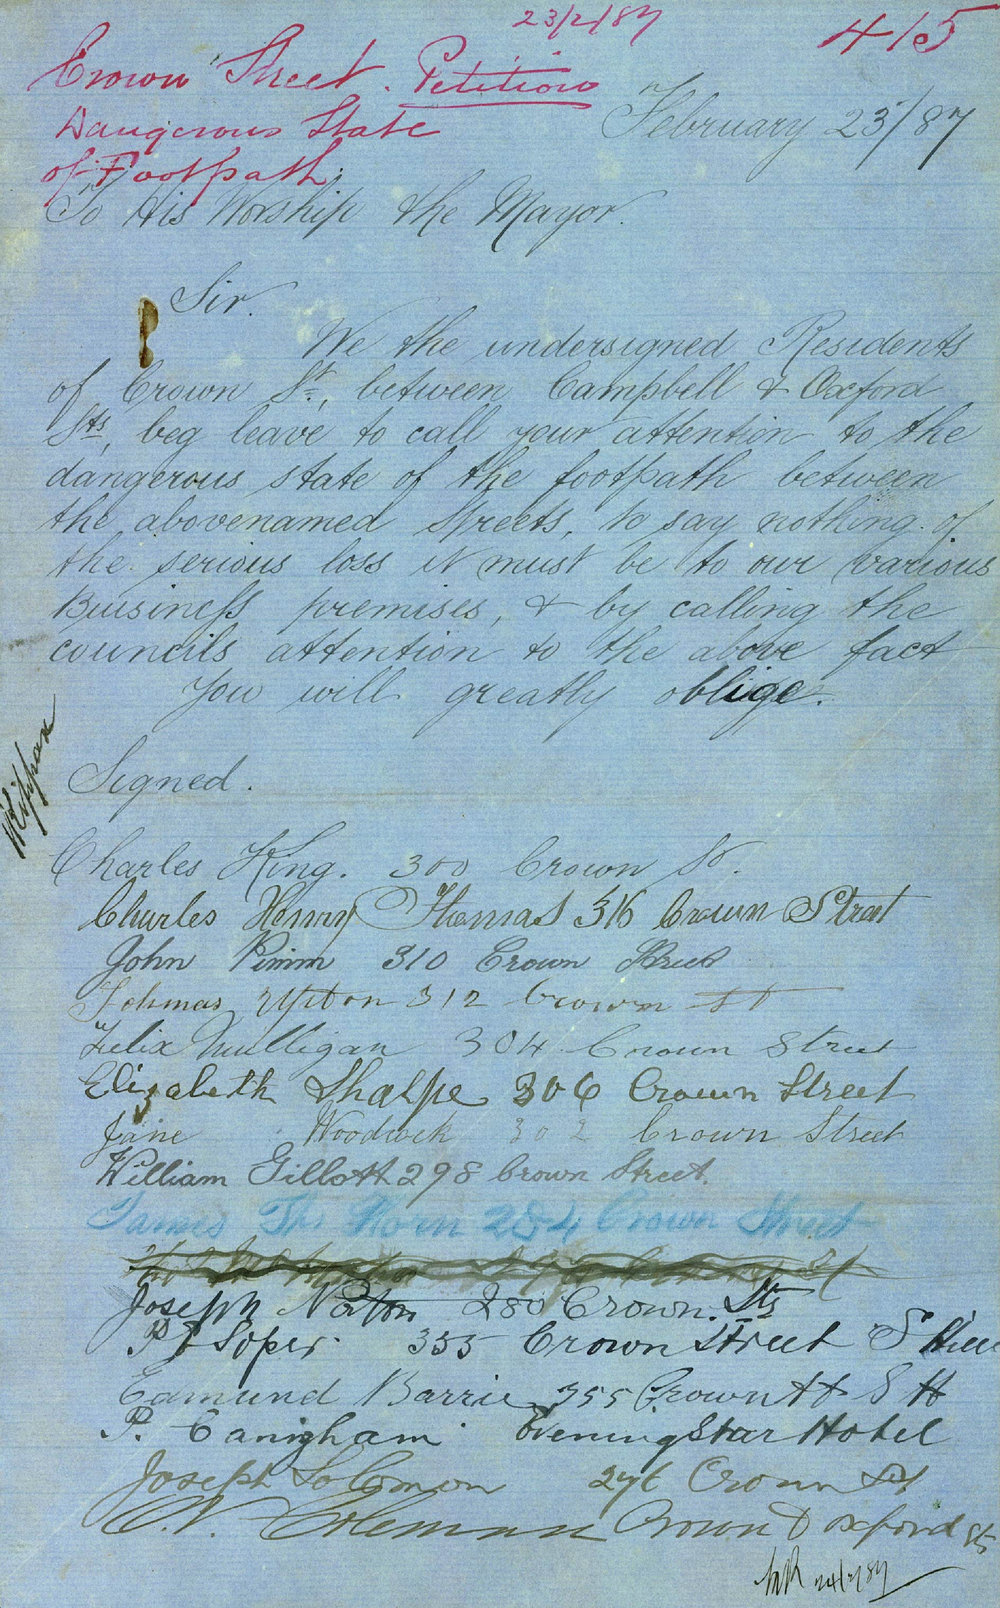 23/2/87
415
Crown Street. Petition
Dangerous State
of Footpath.
February 23/87
To His Worship the Mayor.
Sir.
We the undersigned Residents
of Crown St, between Campbell & Oxford
Sts, beg leave to call your attention to the
dangerous state of the footpath between
the abovenamed streets, to say nothing of
the serious loss it must be to our various
Buisiness premises, & by calling the
councils attention to the above fact
You will greatly oblige.
Signed.
Kippax
Charles King. 300 Crown St.
Charles Henry Thomas 316 Crown Street
John Pimm 310 Crown Street
Tohmas Upton 312 Crown St
Felix Mulligan 304 Crown Street
Elizabeth Shalpe 306 Crown Street
Jane Woodwek 302 Crown Street
William Gillott 298 Crown Street.
James Horn 284 Crown Street
Joseph Norton 280 Crown. Sts
Soper 355 Crown Street S
Edmund Barrie 355 Crown St S H
P. Canigham Evening Star Hotel
Joseph Solomon 276 Crown St
Coleman Crown & Oxford Sts
24/2/87